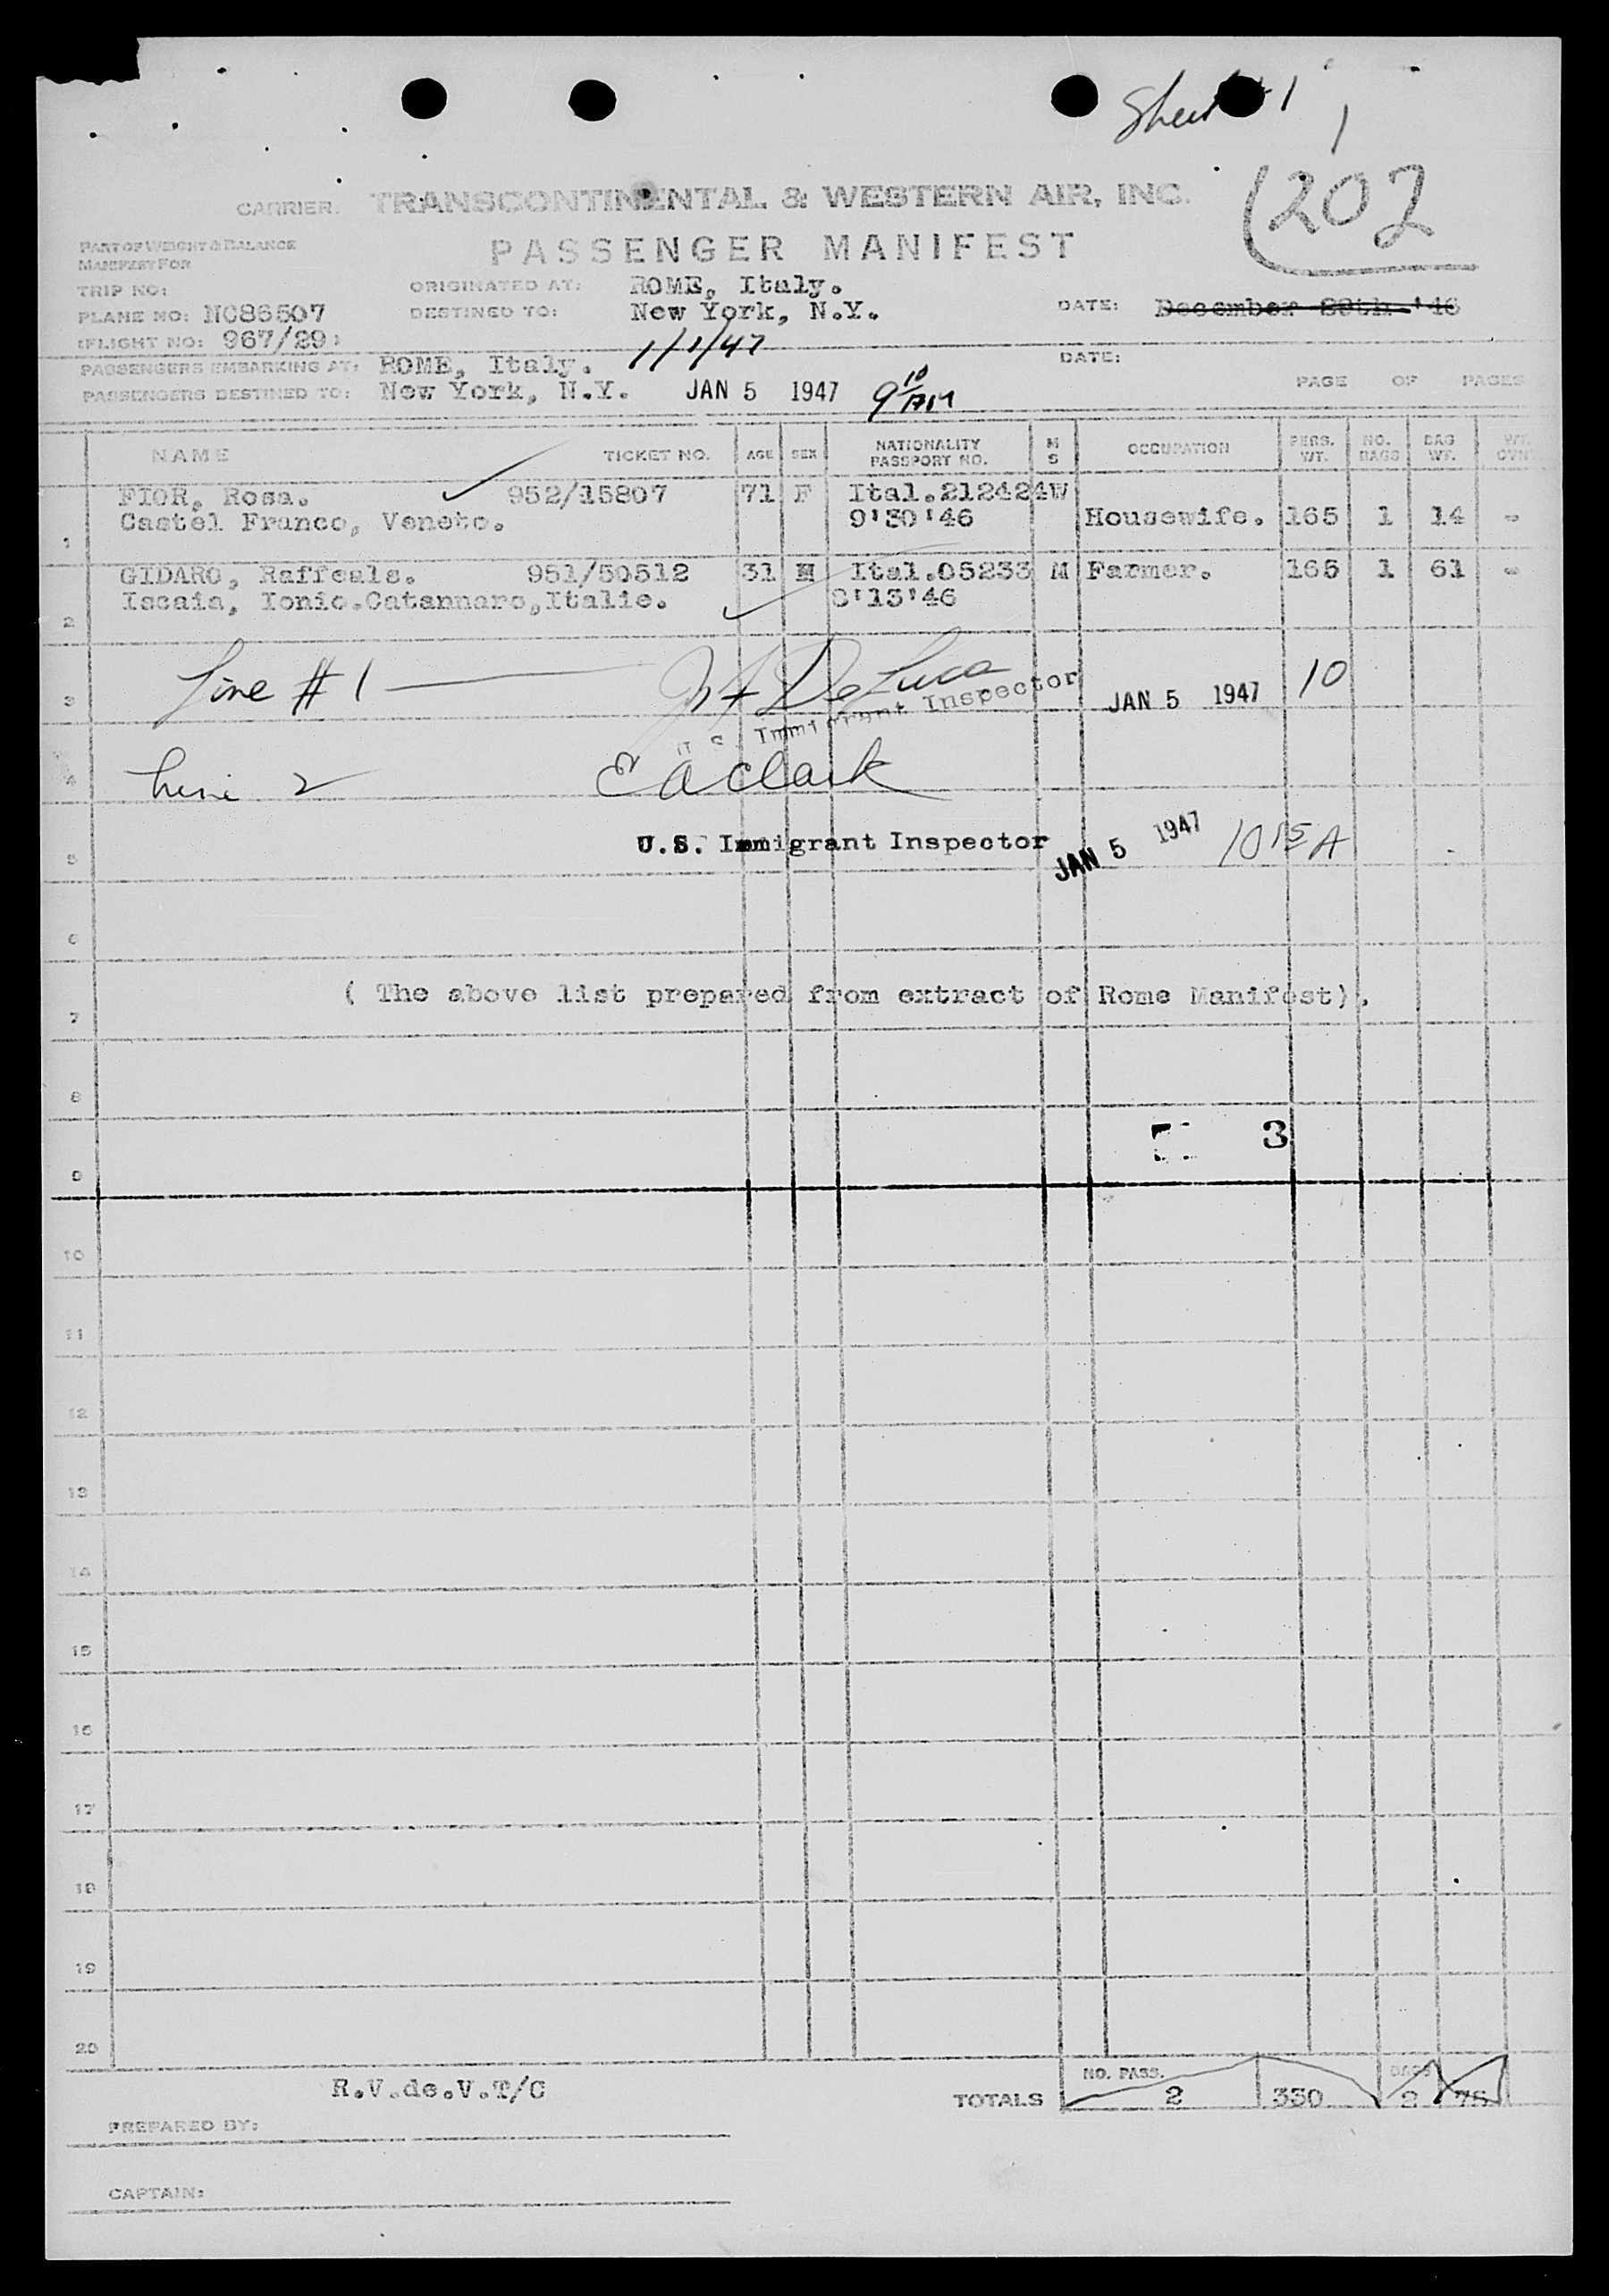 Sheet 1
1
CARRIER: TRANSCONTINENTAL & WESTERN AIR, INC.
1202
PART OF WEIGHT & BALANCE
MANIFEST FOR
PASSENGER MANIFEST
TRIP NO:
ORIGINATED AT: ROME, Italy.
PLANE NO: NC86507
DESTINED TO: New York, N.Y.
DATE: December 29th '46
(FLIGHT NO: 967/29)
1/1/47
PASSENGERS EMBARKING AT: ROME, Italy.
DATE:
PASSENGERS DESTINED TO: New York, N.Y. JAN 5 1947 9 10 AM
PAGE OF PAGES
NAME TICKET NO. AGE SEX NATIONALITY PASSPORT NO. M S OCCUPATION PERS. WT. NO. BAGS BAG WT. WT. OVN
FIOR, Rosa. 952/15807 71 F Ital.212424W
1 Castel Franco, Veneto. 9'30'46 Housewife. 165 1 14 -
GIDARO, Raffeals. 951/50512 31 M Ital.05233 M Farmer. 165 1 61 -
2 Iscaia, Ionio.Catannaro,Italie. 8'13'46
3 Line #1 DeLuca JAN 5 1947 10
U S Immigrant Inspector
4 Line 2 E A Clark
5 U.S. Immigrant Inspector JAN 5 1947 10 15 A
6
7 ( The above list prepared from extract of Rome Manifest).
8
3
9
10
11
12
13
14
15
16
17
18
19
20
R.V.de.V.T/C
TOTALS NO. PASS. 2 330 BAGS 2 75
PREPARED BY:
CAPTAIN: